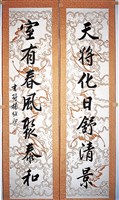 天將化日舒清景
室有春風聚泰和